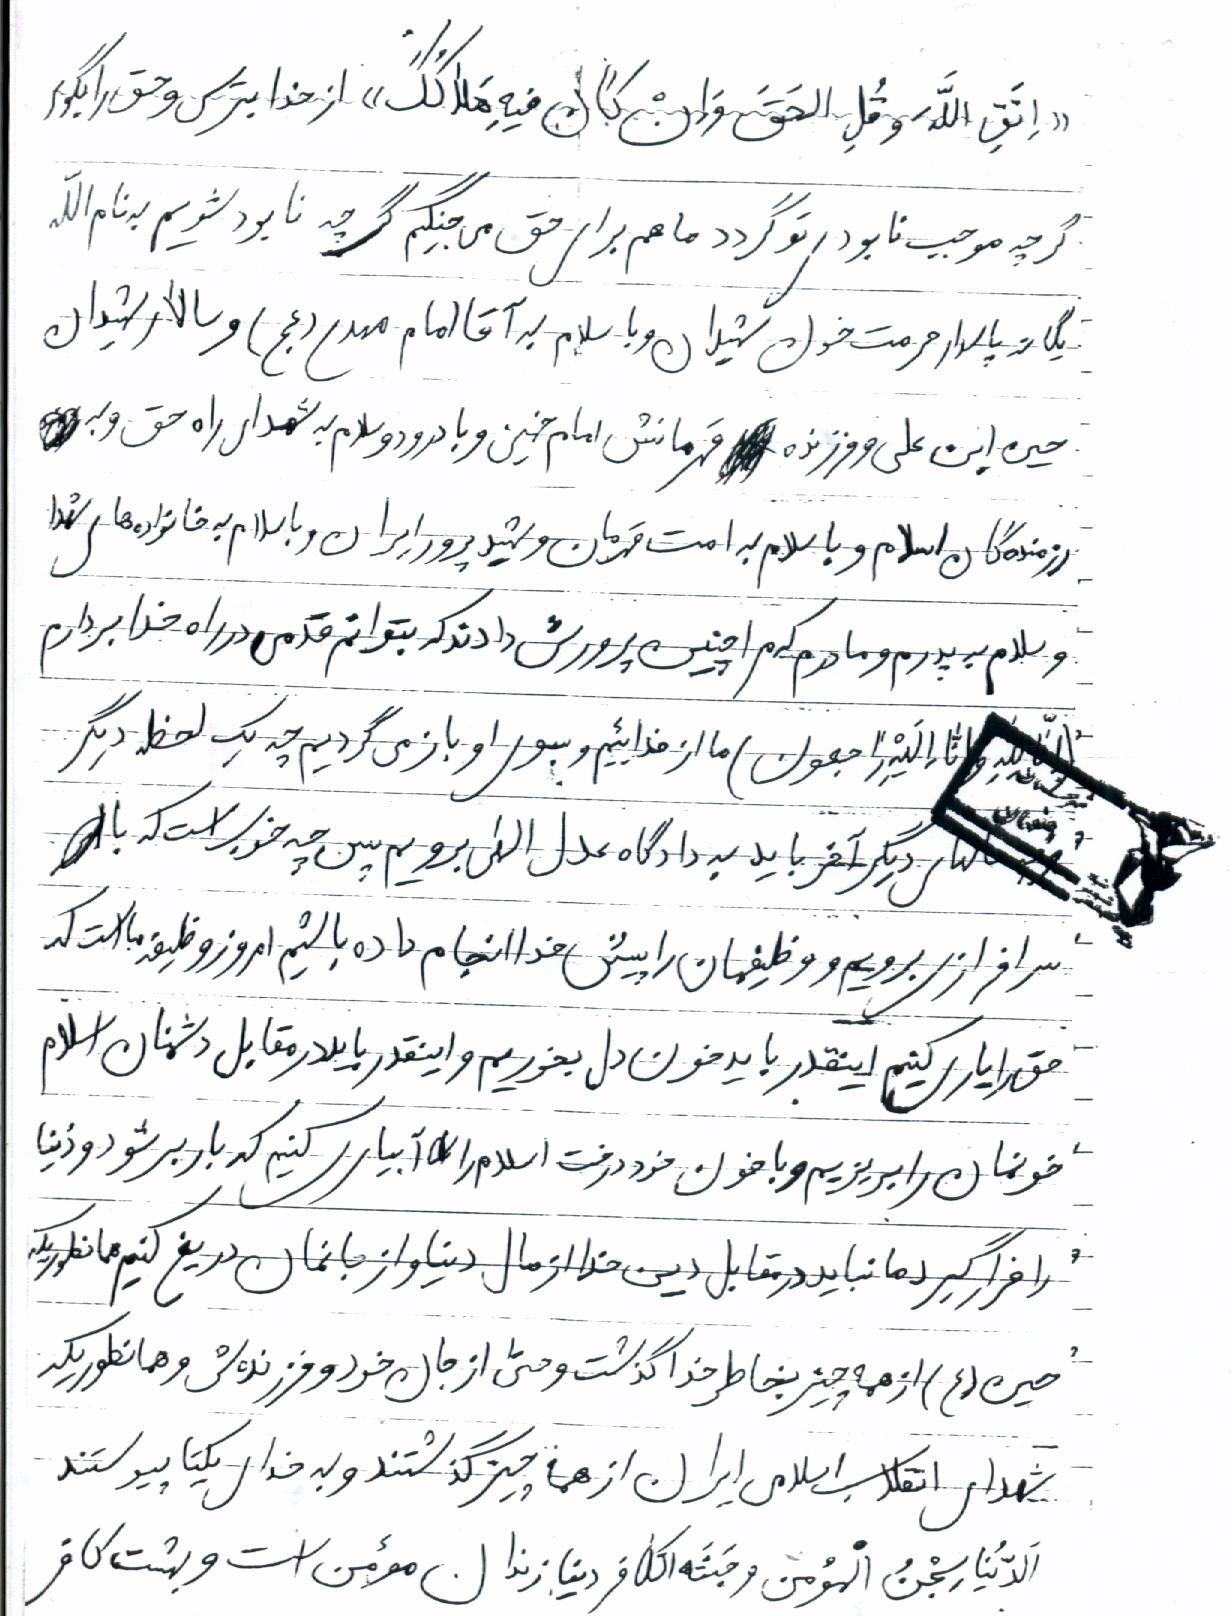 «اِتَّقِ اللَّهَ وَ قُلِ الحَقَّ وَ اِن کانَ فیهِ هَلاکُکَ» از خدا بترس و حق را بگو
گرچه موجب نابودی تو گردد ما هم برای حق می جنگیم گرچه نابود شویم به نام اللّه
یگانه پاسدار حرمت خون شهیدان و با سلام به آقا امام مهدی (عج) و سالار شهیدان
حسین ابن علی و فرزنده قهرمانش امام خمینی و با درود و سلام به شهدای راه حق و به
رزمنده گان اسلام و با سلام به امت قهرمان و شهید پرور ایران و با سلام به خانواده های شهدا
و سلام به پدرم و مادرم که مرا چنین پرورش دادند که بتوانم قدمی در راه خدا بردارم
(اِنّا لِلّهِ وَ اِنّا اِلَیْهِ راجعون) ما از خدائیم و بسوی او باز می گردیم چه یک لحظه دیگر
سالهای دیگر آخر باید به دادگاه عدل الهی برویم پس چه خوب است که با
سرافرازی برویم و وظیفمان را پیش خدا انجام داده باشیم امروز وظیفه ما است که
حق را یاری کنیم اینقدر باید خون دل بخوریم و اینقدر باید در مقابل دشمنان اسلام
خونمان را بریزیم و با خون خود درخت اسلام را آبیاری کنیم که بارور شود و دنیا
را فراگیرد ما نباید در مقابل دین خدا از مال دنیا و از جانمان دریغ کنیم همانطوریکه
حسین (ع) از همه چیز بخاطر خدا گذشت و حتی از جان خود و فرزندهش و همانطوریکه
شهدای انقلاب اسلامی ایران از همه چیز گذشتند و به خدای یکتا پیوستند
اَلدُّنیا سِجْنُ الْمؤمن و جَنَّتَه الکافر دنیا زندان مؤمن است و بهشت کافر